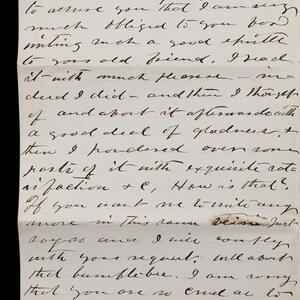 to assure you that I am very
much obliged to you for
writing such a good epistle
to your old friend. I read
it with much pleasure - in-
deed I did - and then I thought
of and about it afterwards with
a good deal of gladness, &
then I pondered over some
parts of it with exquisite sat-
isfaction & C, How is that?
If you want me to write any
more in this same vein just
say so and I will comply
with your request. well about
that bumble bee. I am sorry
that you are so cruel as to